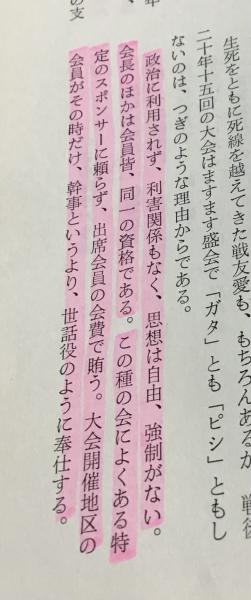 生死をともに死線を越えてきた戦友愛も、もちろんあるが
二十年十五回の大会はますます盛会で「ガタ」とも「ピシ」ともし
ないのは、つぎのような理由からである。
政治に利用されず、利害関係もなく、思想は自由、強制がない。
会長のほかは会員皆、同一の資格である。この種の会によくある特
定のスポンサーに頼らず、出席会員の会費で賄う。大会開催地区の
会員がその時だけ、幹事というより、世話役のように奉仕する。
の支